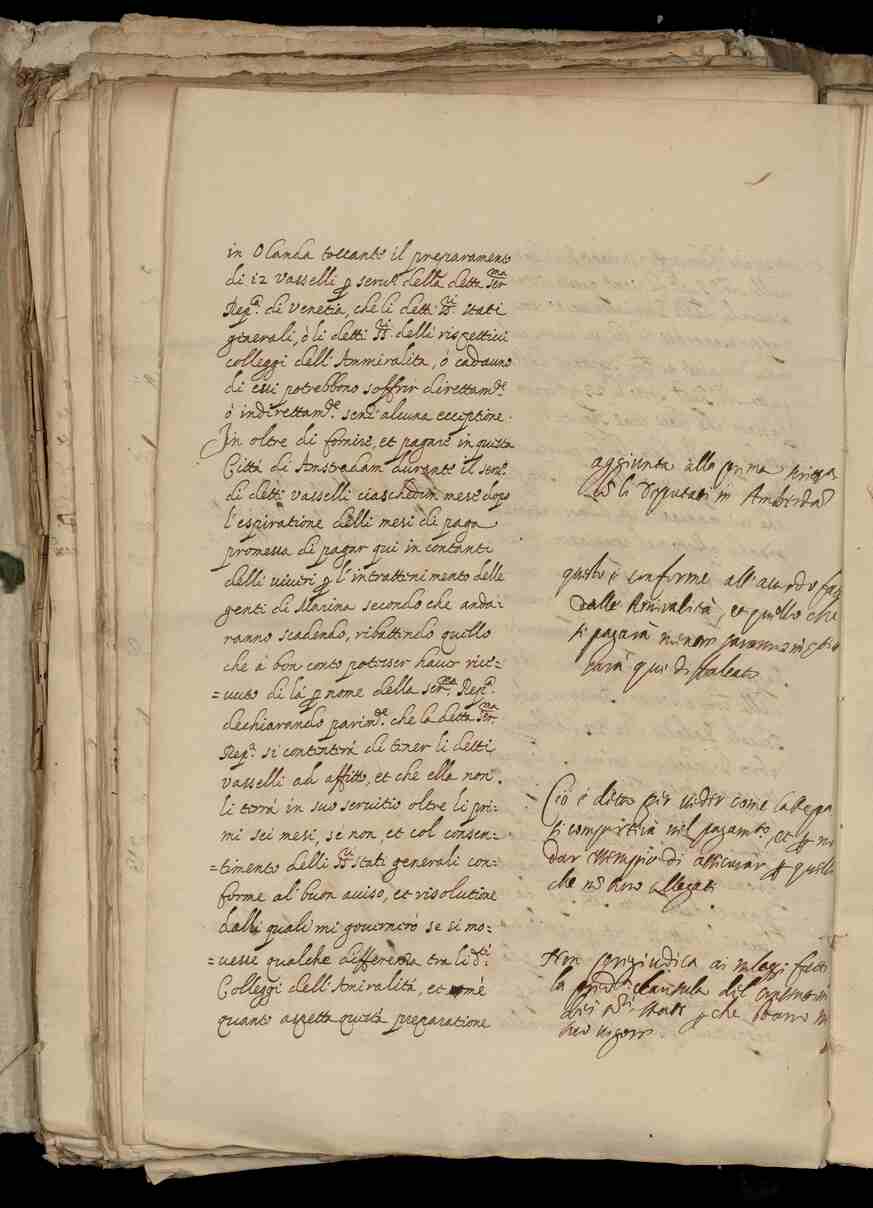 in Olanda toccante il preparamento
di 12 Vasselli p servo della detta Serma
Repca. di Venetia, che li detti SSri. Stati
generali, ò li detti SSri. delli rispettivi
Colleggi dell'Ammiralita, ó cadauno
di essi potrebbono soffrir direttamte.
ò indirettamte. senz'alcuna ecceptione.
In oltre di fornire, et pagare in questa
Città di Amstradam durante il servo.
di detti vasselli ciaschedun mese dopo
l'espiratione delli mesi di paga
promessa di pagar qui in contanti
delli viveri p l'intrattenimento delle
genti di Marina secondo che anda-
ranno scadendo, ribattendo quello
che à bon conto potesser haver rice-
=vuto di lá p nome della Serma. Repca.
dechiarando parimte. che la detta Serma
Repca. si contenterà di tener li detti
vasselli ad affitto, et che ella non
li terrà in suo servitio oltre li pri-
mi sei mesi, se non, et col consen-
=timento delli SSri Stati generali con-
forme al buon aviso, et risolutione
dalli quali mi governeró se si mo-
=vesse qualche differenza tra li dti.
Colleggi dell'Amiralitá, et me
quanto aspetta questa preparatione
aggiunta alla prima
co li Deputati in Amsterdam
questo è conforme all'acordo
dalle Amiralità, et quello che
si pagarà
sarà qui difalcato
Ció è detto per veder come la Repca
si compiscerà nel pagamto, et p no
dar esempio di p quelli
che nō sono Allegati
Non pregiudica ai
la clausula del
dei Stati p che
loro vigore.